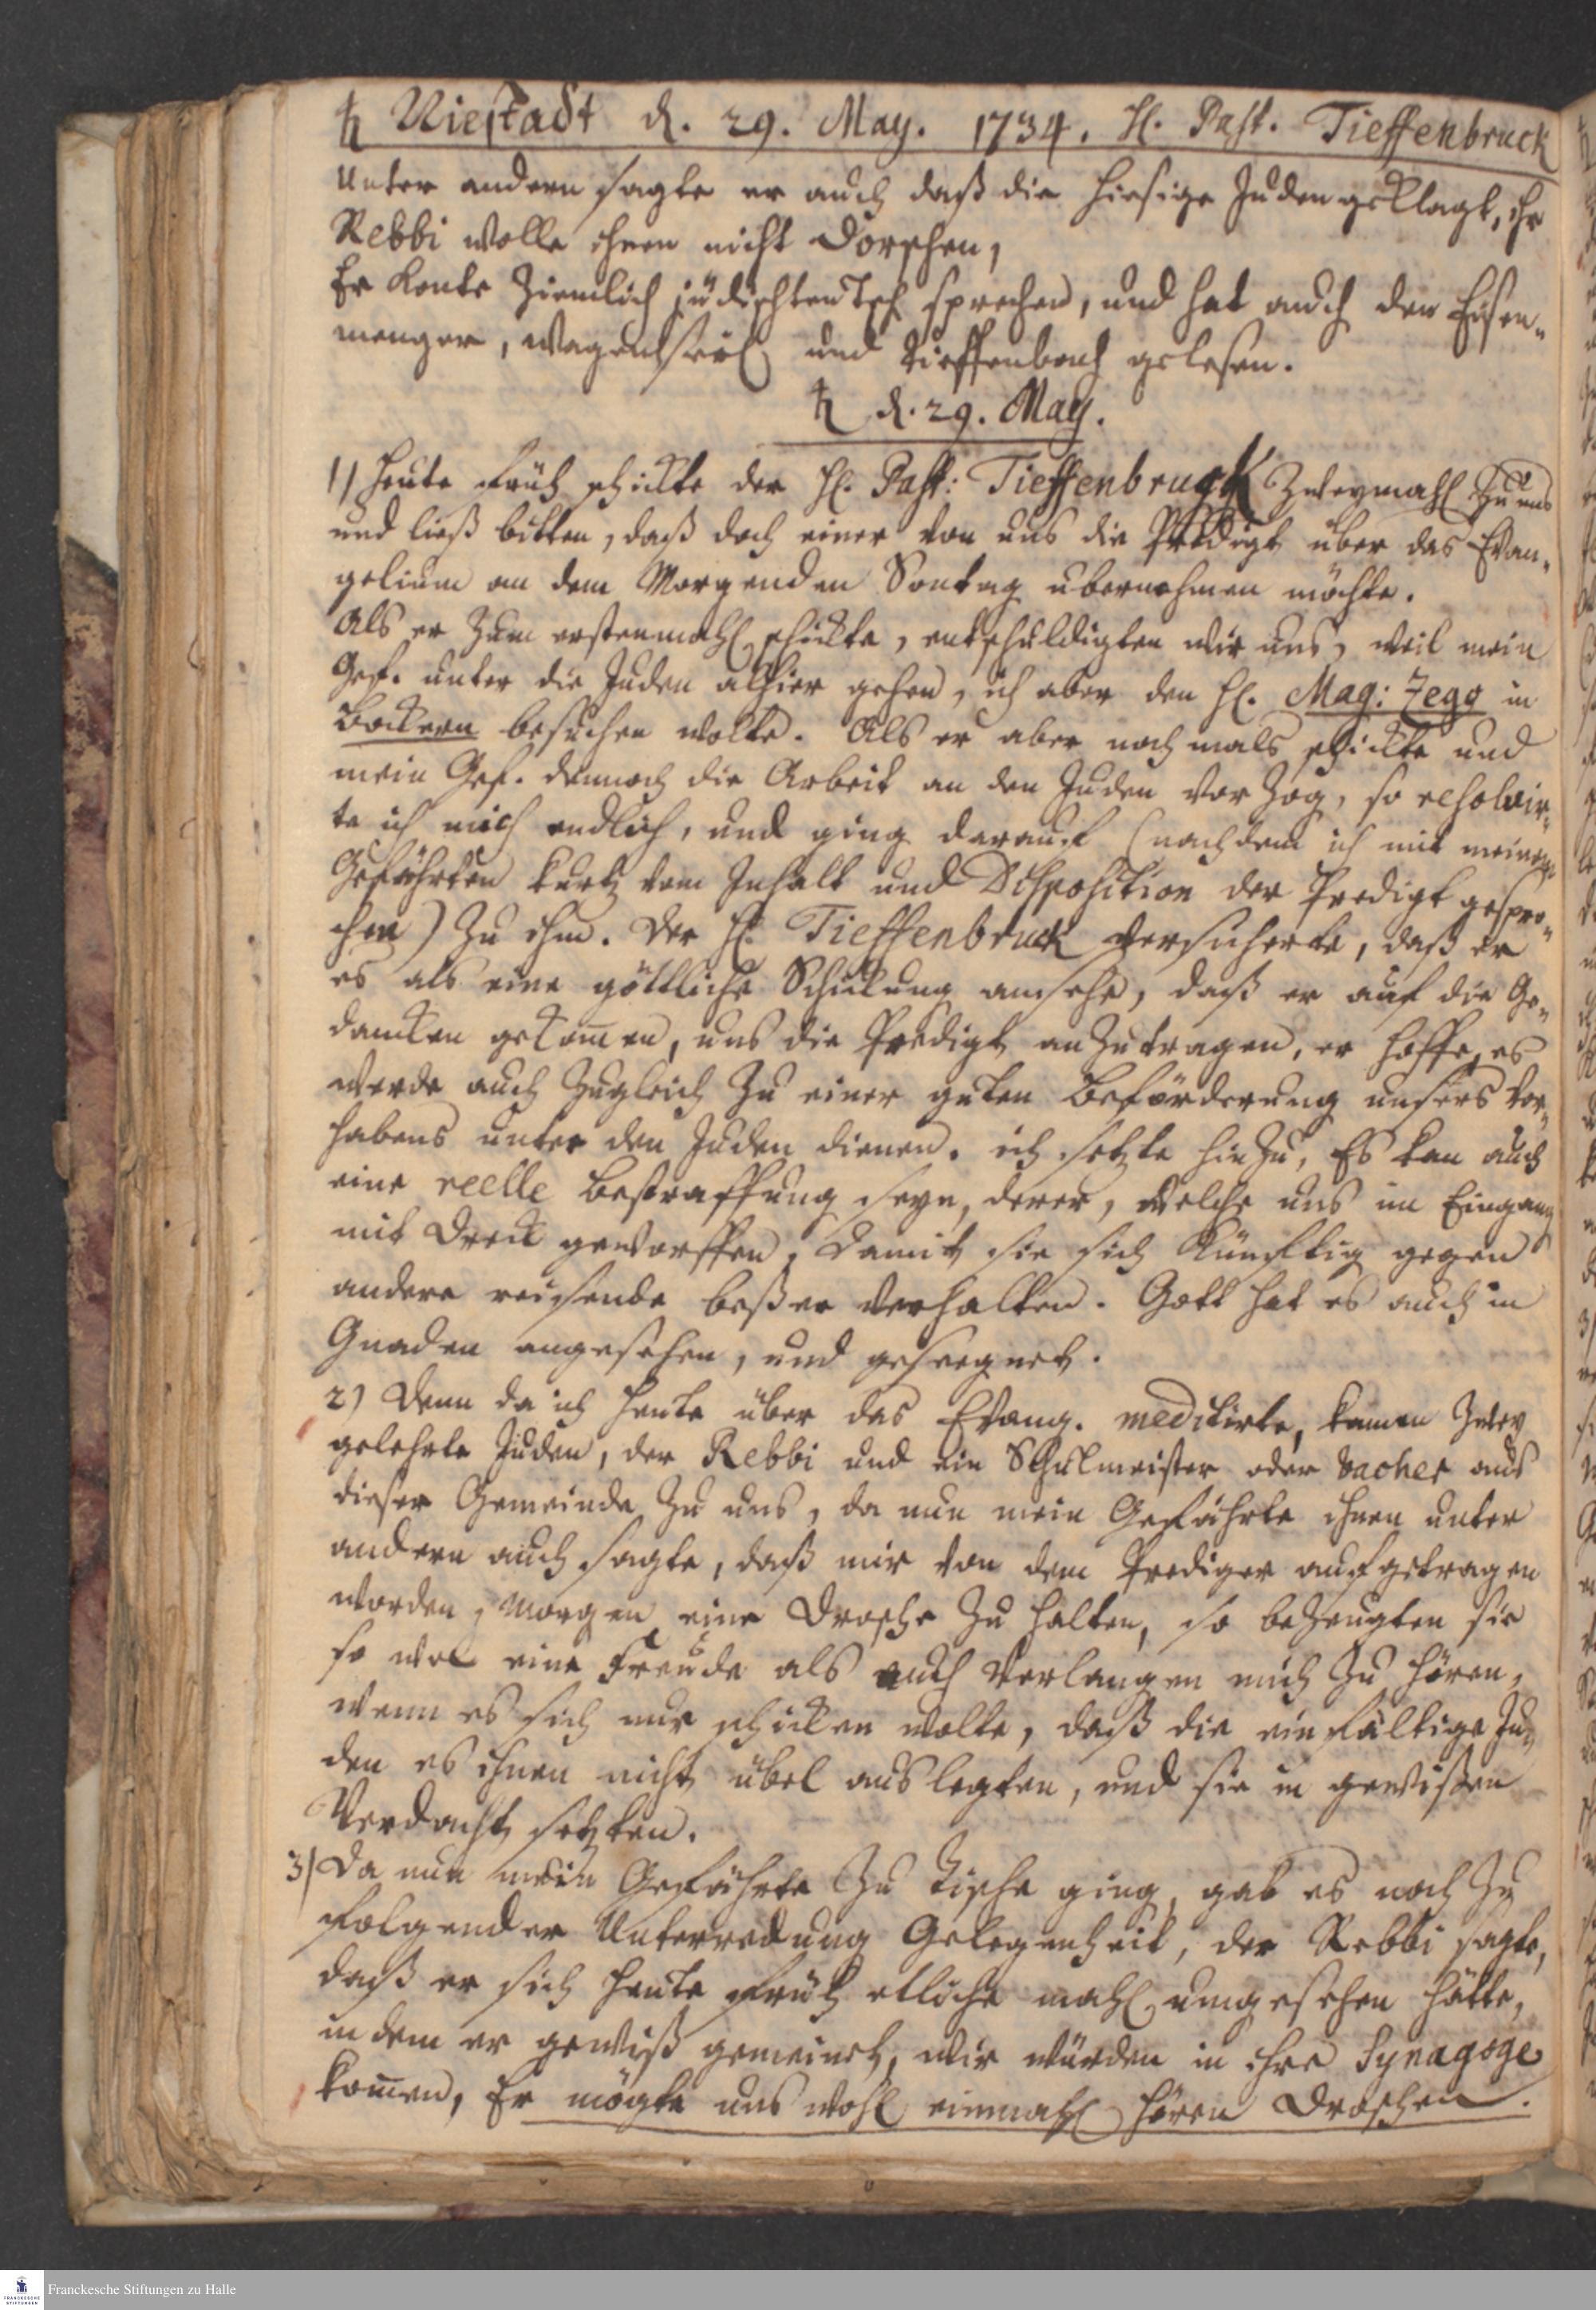 ♄ Niestadt d. 29. May. 1734. H. Past. Tieffenbruck
Unter andern sagte er auch daß die hiesige Juden geklagt, ihr
Rebbi wolle ihnen nicht dorschen,
Er konte ziemlich jüdischteutsch sprechen, und hat auch den Eisen-
menger, Wagenseil und Tieffenbach gelesen.
♄ d. 29. May.
1) Heute früh schickte der H. Past: Tieffenbruck zweymahl zu uns
und ließ bitten, daß doch einer von uns die Predigt über das Evan-
gelium an dem Morgenden Sontag übernehmen möchte.
Als er zum erstenmahl schickte, entschuldigten wir uns, weil mein
Gef. unter die Juden alhier gehen, ich aber den H. Mag: Zegg in
Bockern besuchen wolte. Als er aber nochmals schickte und
mein Gef. dennoch die Arbeit an den Juden vorzog, so resolvir-
te ich mich endlich, und ging darauf (nachdem ich mit meinen
Gefährten kurtz vom Inhalt und Disposition der Predigt gespro-
chen) zu ihm. Der H. Tieffenbruck versicherte, daß er
es als eine göttliche Schickung ansehe, daß er auf die Ge-
dancken gekom̅en, uns die Predigt anzutragen, er hoffe, es
werde auch zugleich zu einer guten Beförderung unsers Vor-
habens unter den Juden dienen. ich setzte hinzu, Es kan auch
eine reelle Bestraffung seyn, derer, welche uns im Eingang
mit Dreck geworffen, damit sie sich künftig gegen
andere reisende beßer verhalten. Gott hat es auch in
Gnaden angesehen, und geseegnet.
2) Denn da ich heute über das Evang. meditirte, kamen zwey
gelehrte Juden, der Rebbi und ein Schulmeister oder bacher aus
dieser Gemeinde zu uns, da nun mein Gefährte ihnen unter
andern auch sagte, daß mir von dem Prediger aufgetragen
worden, morgen eine Drosche zu halten, so bezeugten sie
so wol eine Freude als auch Verlangen mich zu hören,
wenn es sich nur schicken wolte, daß die einfältige Ju-
den es ihnen nicht übel auslegten, und sie in gewißen
Verdacht setzten.
3) Da nun mein Gefährte zu Tische ging, gab es noch zu
folgender Unterredung Gelegenheit, der Rebbi sagte,
daß er sich heute früh etliche mahl umgesehen hätte,
indem er gewiß gemeinet, wir würden in ihre Synagoge
kom̅en, Er mögte uns wohl einmahl hören droschen.
Franckesche Stiftungen zu Halle
FRANCKESCHE
STIFTUNGEN